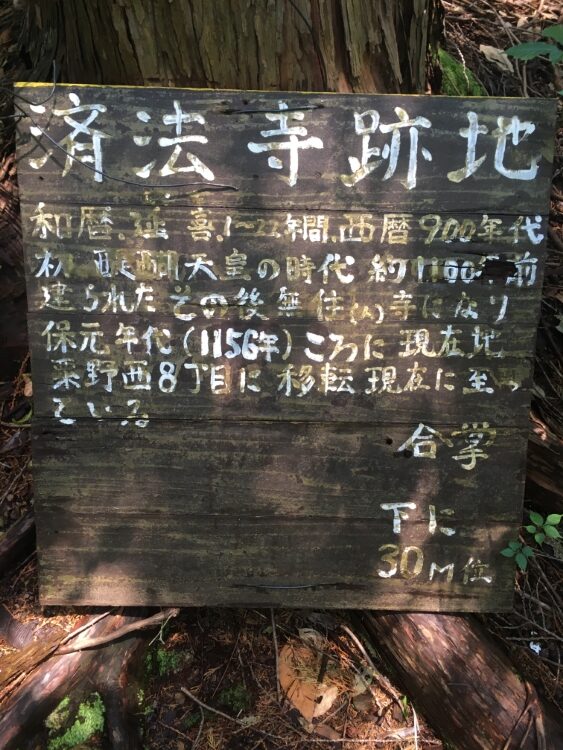 済法寺跡地
和暦.延喜.1〜22年間.西暦900年代
初 醍醐天皇の時代 約1100年前
建られたその後無住(人)寺になり
保元年代(1156年)ころに 現在地
粟野西8丁目に移転現在に至っ
ている
合掌
下に
30M位